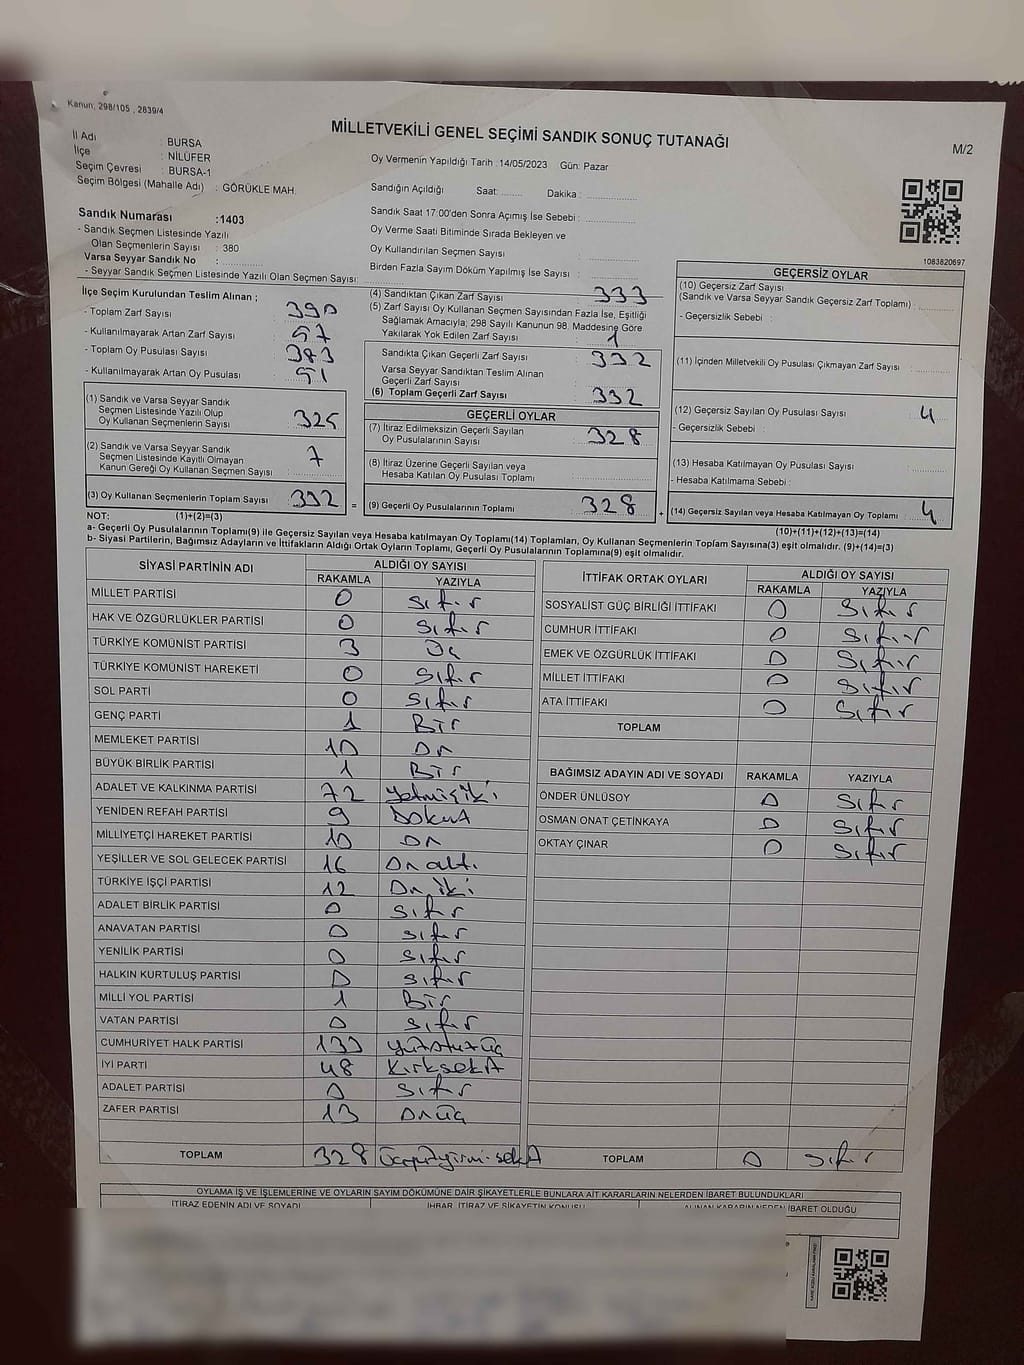 Kanun: 298/105 , 2839/4
MİLLETVEKİLİ GENEL SEÇİMİ SANDIK SONUÇ TUTANAĞI
M/2
İl Adı : BURSA
İlçe : NİLÜFER
Seçim Çevresi : BURSA-1
Seçim Bölgesi (Mahalle Adı) : GÖRÜKLE MAH.
Oy Vermenin Yapıldığı Tarih :14/05/2023 Gün: Pazar
Sandığın Açıldığı Saat: ........ Dakika : ................
Sandık Numarası :1403
- Sandık Seçmen Listesinde Yazılı
Olan Seçmenlerin Sayısı : 380
Varsa Seyyar Sandık No :
- Seyyar Sandık Seçmen Listesinde Yazılı Olan Seçmen Sayısı:
Sandık Saat 17:00'den Sonra Açımış İse Sebebi :
Oy Verme Saati Bitiminde Sırada Bekleyen ve
Oy Kullandırılan Seçmen Sayısı :
Birden Fazla Sayım Döküm Yapılmış İse Sayısı :
1083820697
İlçe Seçim Kurulundan Teslim Alınan ;
- Toplam Zarf Sayısı : 390
- Kullanılmayarak Artan Zarf Sayısı : 57
- Toplam Oy Pusulası Sayısı : 383
- Kullanılmayarak Artan Oy Pusulası : 51
(1) Sandık ve Varsa Seyyar Sandık
Seçmen Listesinde Yazılı Olup
Oy Kullanan Seçmenlerin Sayısı : 325
(2) Sandık ve Varsa Seyyar Sandık
Seçmen Listesinde Kayıtlı Olmayan
Kanun Gereği Oy Kullanan Seçmen Sayısı : 7
(3) Oy Kullanan Seçmenlerin Toplam Sayısı : 332 =
(4) Sandıktan Çıkan Zarf Sayısı : 333
(5) Zarf Sayısı Oy Kullanan Seçmen Sayısından Fazla İse, Eşitliği
Sağlamak Amacıyla; 298 Sayılı Kanunun 98. Maddesine Göre
Yakılarak Yok Edilen Zarf Sayısı : 1
Sandıkta Çıkan Geçerli Zarf Sayısı : 332
Varsa Seyyar Sandıktan Teslim Alınan
Geçerli Zarf Sayısı :
(6) Toplam Geçerli Zarf Sayısı : 332
GEÇERLİ OYLAR
(7) İtiraz Edilmeksizin Geçerli Sayılan
Oy Pusulalarının Sayısı : 328
(8) İtiraz Üzerine Geçerli Sayılan veya
Hesaba Katılan Oy Pusulası Toplamı :
(9) Geçerli Oy Pusulalarının Toplamı : 328 +
GEÇERSİZ OYLAR
(10) Geçersiz Zarf Sayısı
(Sandık ve Varsa Seyyar Sandık Geçersiz Zarf Toplamı) :
- Geçersizlik Sebebi :
(11) İçinden Milletvekili Oy Pusulası Çıkmayan Zarf Sayısı :
(12) Geçersiz Sayılan Oy Pusulası Sayısı : 4
- Geçersizlik Sebebi :
(13) Hesaba Katılmayan Oy Pusulası Sayısı :
- Hesaba Katılmama Sebebi :
(14) Geçersiz Sayılan veya Hesaba Katılmayan Oy Toplamı : 4
NOT: (1)+(2)=(3)
(10)+(11)+(12)+(13)=(14)
a- Geçerli Oy Pusulalarının Toplamı(9) ile Geçersiz Sayılan veya Hesaba katılmayan Oy Toplamı(14) Toplamları, Oy Kullanan Seçmenlerin Toplam Sayısına(3) eşit olmalıdır. (9)+(14)=(3)
b- Siyasi Partilerin, Bağımsız Adayların ve İttifakların Aldığı Ortak Oyların Toplamı, Geçerli Oy Pusulalarının Toplamına(9) eşit olmalıdır.
SİYASİ PARTİNİN ADI ALDIĞI OY SAYISI
RAKAMLA YAZIYLA
MİLLET PARTİSİ 0 Sıfır
HAK VE ÖZGÜRLÜKLER PARTİSİ 0 Sıfır
TÜRKİYE KOMÜNİST PARTİSİ 3 Üç
TÜRKİYE KOMÜNİST HAREKETİ 0 Sıfır
SOL PARTİ 0 Sıfır
GENÇ PARTİ 1 Bir
MEMLEKET PARTİSİ 10 On
BÜYÜK BİRLİK PARTİSİ 1 Bir
ADALET VE KALKINMA PARTİSİ 72 Yetmişiki
YENİDEN REFAH PARTİSİ 9 Dokuz
MİLLİYETÇİ HAREKET PARTİSİ 10 On
YEŞİLLER VE SOL GELECEK PARTİSİ 16 Onaltı
TÜRKİYE İŞÇİ PARTİSİ 12 Oniki
ADALET BİRLİK PARTİSİ 0 Sıfır
ANAVATAN PARTİSİ 0 Sıfır
YENİLİK PARTİSİ 0 Sıfır
HALKIN KURTULUŞ PARTİSİ 0 Sıfır
MİLLİ YOL PARTİSİ 1 Bir
VATAN PARTİSİ 0 Sıfır
CUMHURİYET HALK PARTİSİ 133 Yüzotuzüç
İYİ PARTİ 48 Kırksekiz
ADALET PARTİSİ 0 Sıfır
ZAFER PARTİSİ 13 Onüç
TOPLAM 328 Üçyüzyirmisekiz
İTTİFAK ORTAK OYLARI ALDIĞI OY SAYISI
RAKAMLA YAZIYLA
SOSYALİST GÜÇ BİRLİĞİ İTTİFAKI 0 Sıfır
CUMHUR İTTİFAKI 0 Sıfır
EMEK VE ÖZGÜRLÜK İTTİFAKI 0 Sıfır
MİLLET İTTİFAKI 0 Sıfır
ATA İTTİFAKI 0 Sıfır
TOPLAM
BAĞIMSIZ ADAYIN ADI VE SOYADI RAKAMLA YAZIYLA
ÖNDER ÜNLÜSOY 0 Sıfır
OSMAN ONAT ÇETİNKAYA 0 Sıfır
OKTAY ÇINAR 0 Sıfır
TOPLAM 0 Sıfır
OYLAMA İŞ VE İŞLEMLERİNE VE OYLARIN SAYIM DÖKÜMÜNE DAİR ŞİKAYETLERLE BUNLARA AİT KARARLARIN NELERDEN İBARET BULUNDUKLARI
İTİRAZ EDENİN ADI VE SOYADI İHBAR, İTİRAZ VE ŞİKAYETİN KONUSU ALINAN KARARIN NEDEN İBARET OLDUĞU